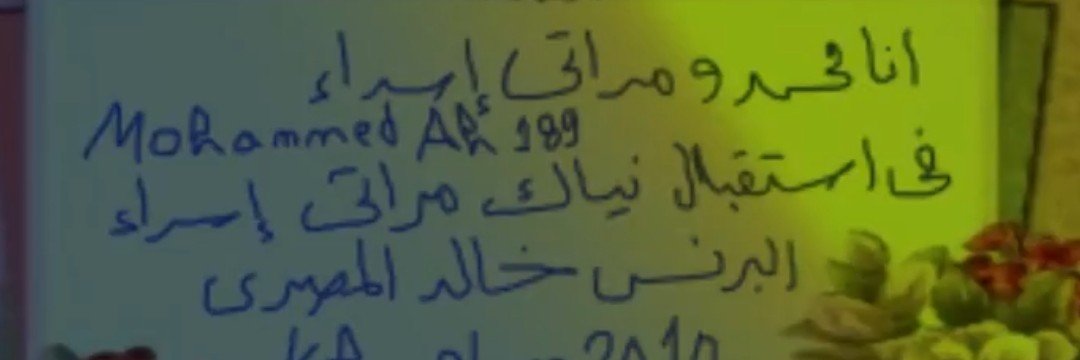 انا محمد ومراتى إسراء
Mohammed Ali 189
فى استقبال نياك مراتى إسراء
البرنس خالد المصرى
2010